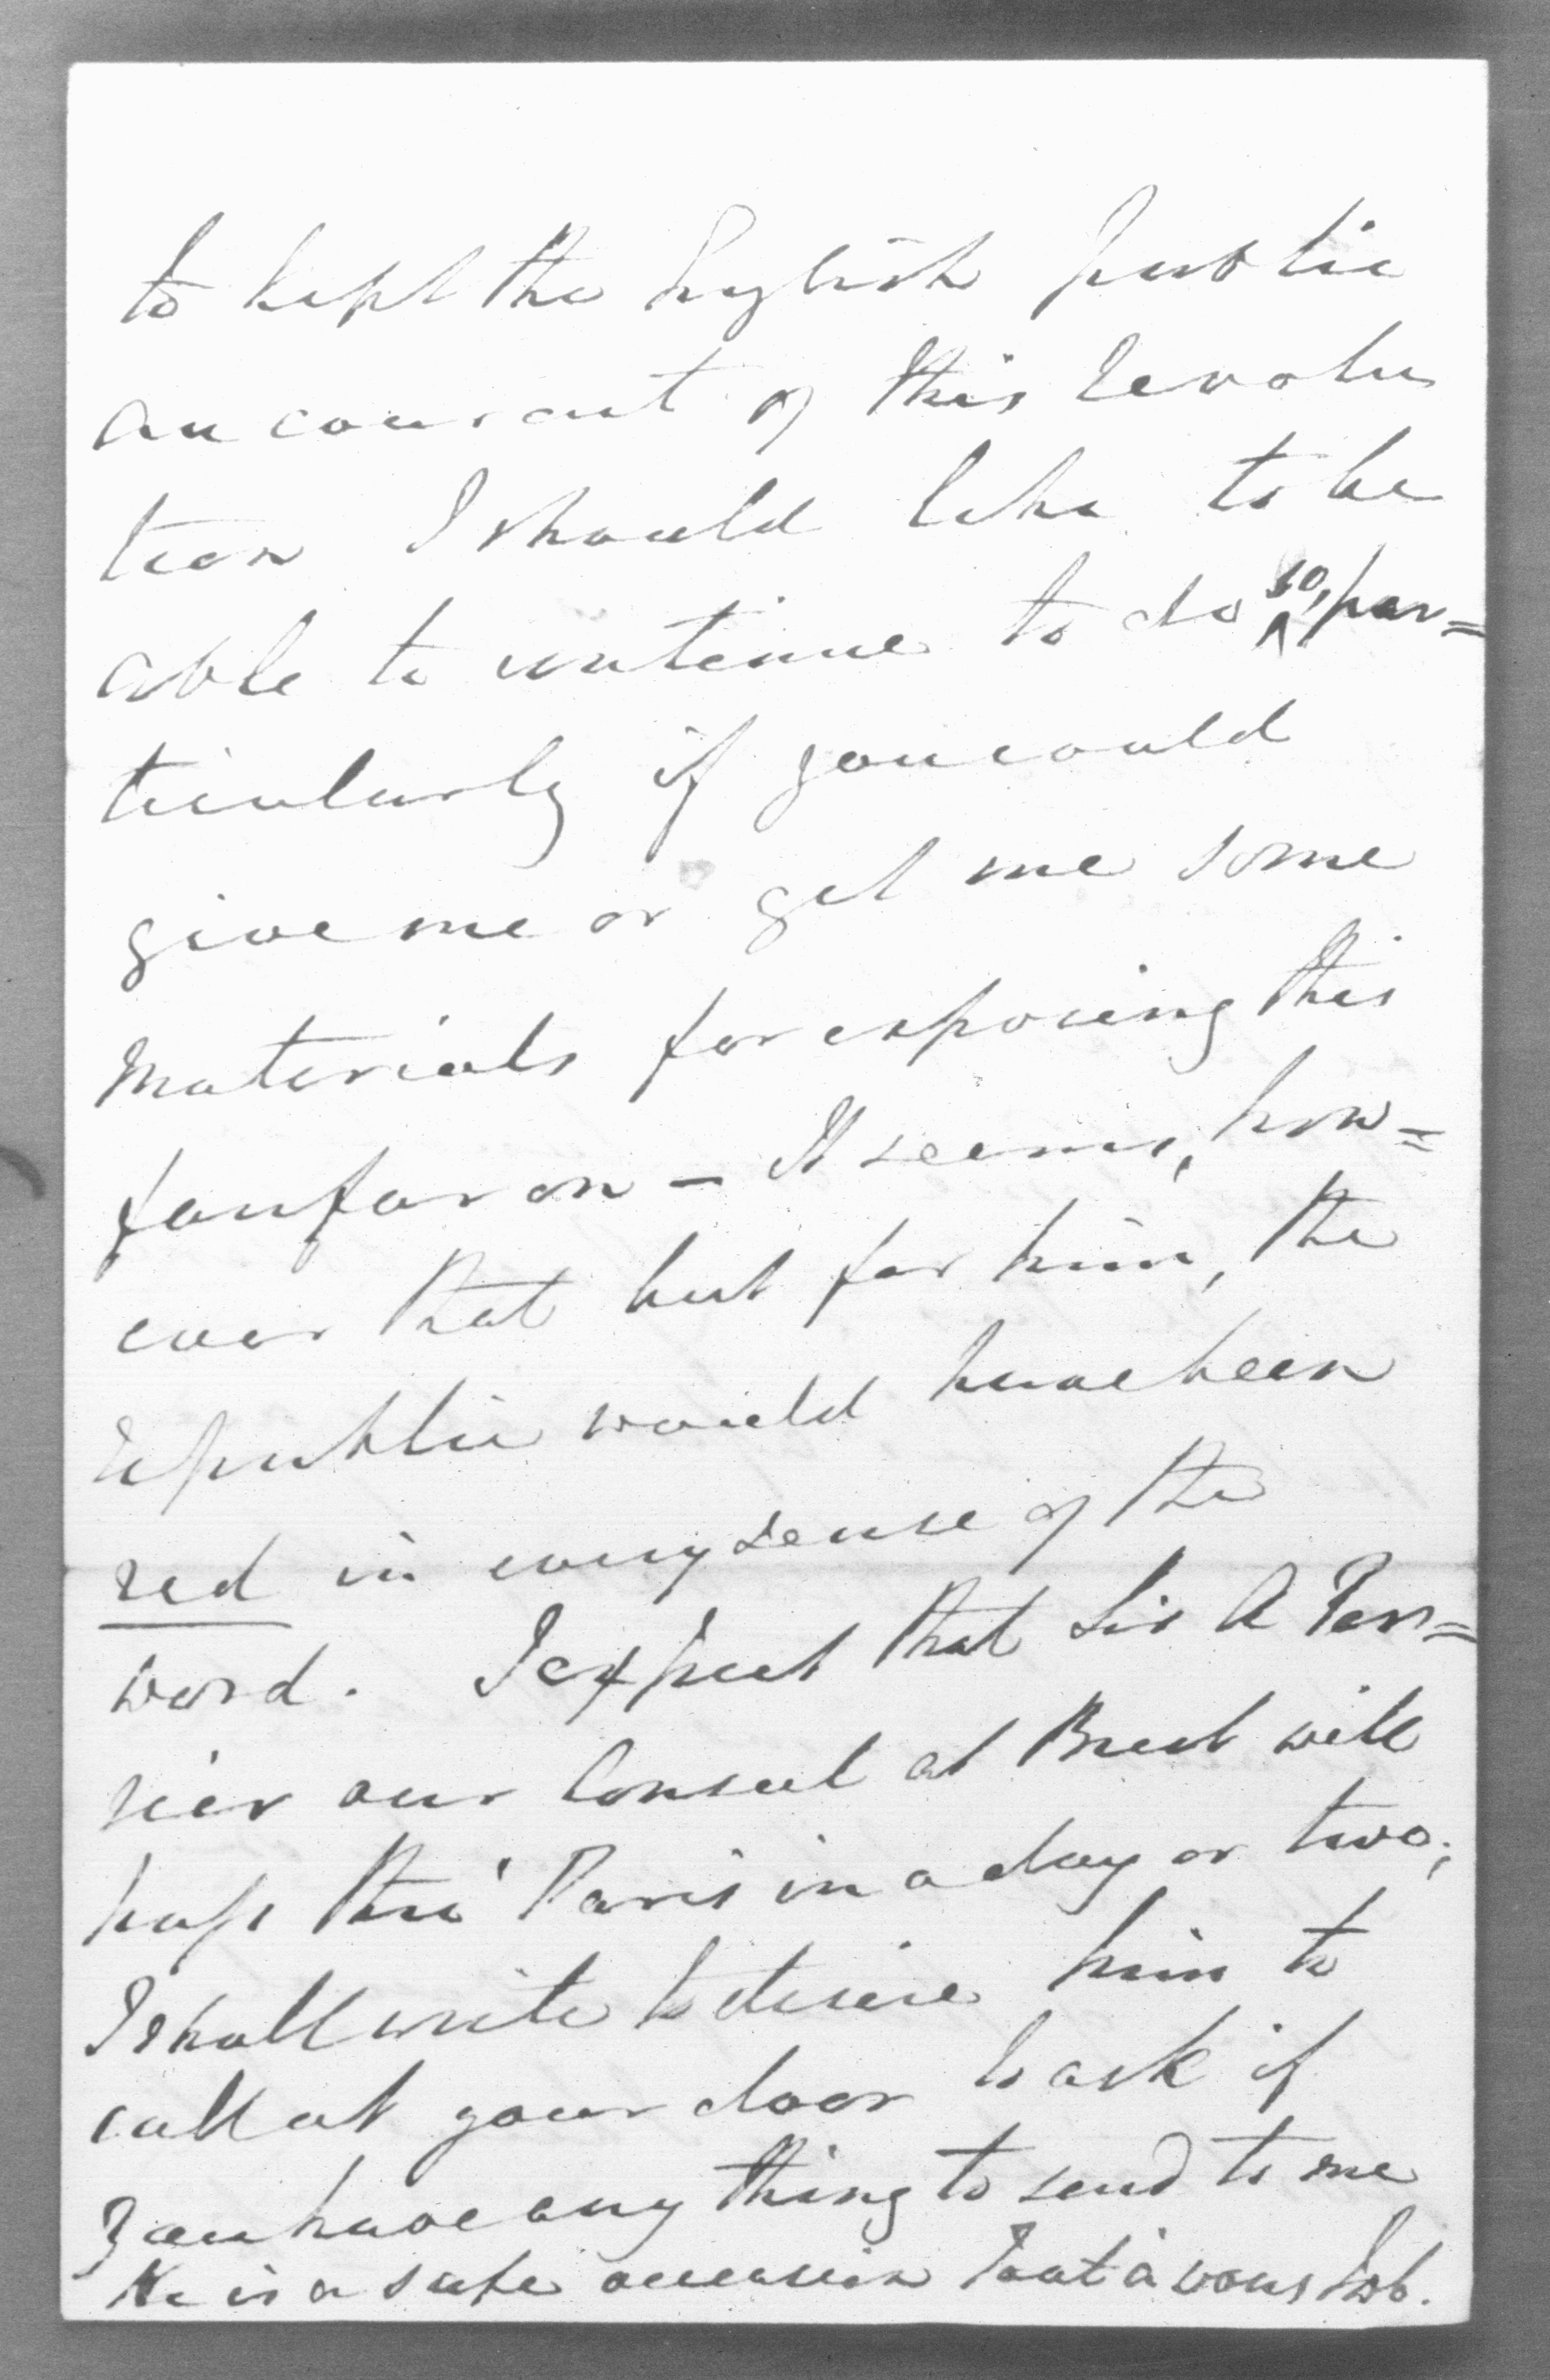 to kept the English public
au courant of this revolu
tion I should like to be
able to continue to do so, par=
ticularly if you could
give me or get me some
materials for exposing this
fanfaron – It seems, how=
ever that but for him, the
republic would have been
red in every sense of the
word. I expect that Sir A Per=
rier our Consul at Brest will
pass thro' Paris in a day or two;
I shall write to desire him to
call at your door to ask if
you have any thing to send to me
He is a safe occasion Tout à vous